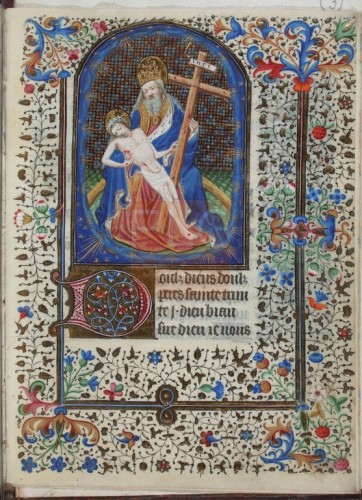 INRI
Doulz dieus doulz
peres sainte trini
te .i. dieu biau
sire dieu ie vous